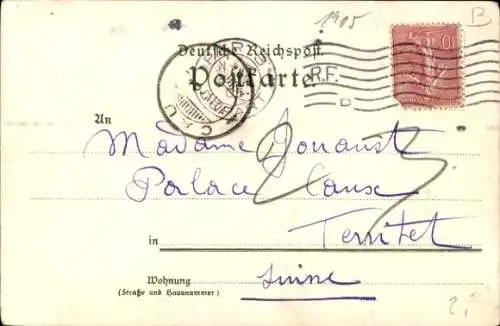 1905
B
Deutsche Reichspost.
Postkarte
R.F.
An
Madame Jouaust
Palace Caux
in Territet
Wohnung
(Straße und Hausnummer)
Suisse
2,